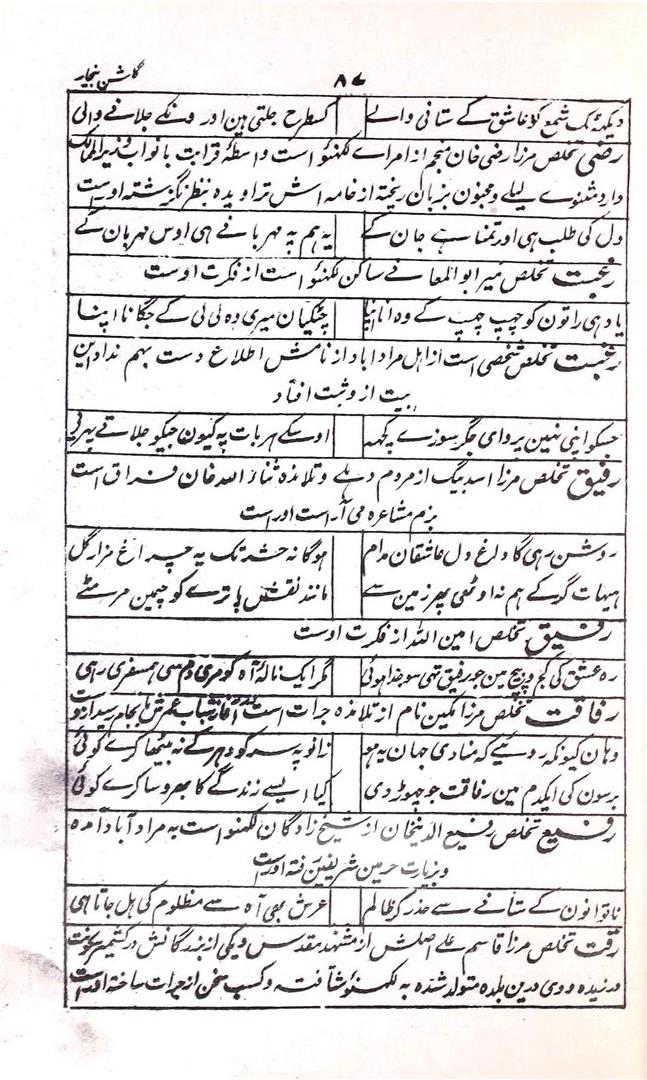 گلشن بیخار
۸۷
دیکھئے ٹک شمع کو عاشق کے ستانی والے کسطرح جلتی ہین اورونکے جلانے والی
رضی تخلص مرزا رضی خان منجم از امراے لکھنؤ است واسطۂ قرابت با نواب وزیر الممالک
دارد مثنوے لیلے و مجنون بزبان ریختہ از خامہ اش تراویدہ بنظر نگذشتہ اوراست
دل کی طلب ہی اور تمنا ہے جان کے یہ ہم پہ مہربانے ہی اوس مہربان کے
رغبت تخلص میر ابو المعانے ساکن لکھنؤ است از فکرت اوست
یاد ہی راتون کو چھپ چھپ کے وہ آنا اپنا چٹکیان میری وہ لی لی کے جگانا اپنا
رغبت تخلص شخصی است از اہل مراداباد از نامش اطلاع دست بہم نداد این
بیت از و ثبت افتاد
جسکو اپنی نہین پروای جگر سوزے کچھ اوسکے ہر بات پہ کیون جیکو جلاتے پھرئی
رفیق تخلص مرزا اسد بیگ از مردم دہلے و تلامذہ ثناء اللہ خان فراق است
بزم مشاعرہ می آراست اوراست
روشن رہی گا داغ دل عاشقان مدام ہوگا نہ حشر تک یہ چراغ مزار گل
ہیہات گر کے ہم نہ اوٹھی پھر زمین سے مانند نقش پا ترے کوچہ مین مر مٹے
رفیق تخلص امین اللہ از فکرت اوست
رہ عشق کی کج و پیچ مین جو رفیق تھی سو جدا ہوئی مگر ایک نالۂ آہ کو مری دم سی ہمسفری رہی
رفاقت تخلص مرزا مکین نام از تلامذہ جرات است آغاز شباب عمرش بانجام رسید ازوست
وہان کیونکہ روئیے کہ منادی جہان یہ ہو زانو پہ سر کو دھر کے نہ بیٹھا کرے کوئی
برسون کی ایکدم مین رفاقت جو چھوڑ دی کیا ایسے زندگے کا بھروسا کرے کوئی
رفیع تخلص رفیع الدینخان از شیخ زادگان لکھنؤ است بہ مراد آباد آمدہ
و بزیارت حرمین شریفین رفتہ اوراست
ناتوانون کے ستانے سے حذر کر ظالم عرش بھی آہ سے مظلوم کی ہل جاتا ہی
رقت تخلص مرزا قاسم علے اصلش از مشہد مقدس و یکی از بزرگانش در کشمیر سکونت
ورزیدہ و وی درین بلدہ متولد شدہ بہ لکھنؤ شتافتہ و کسب سخن از جرات ساختہ اوراست